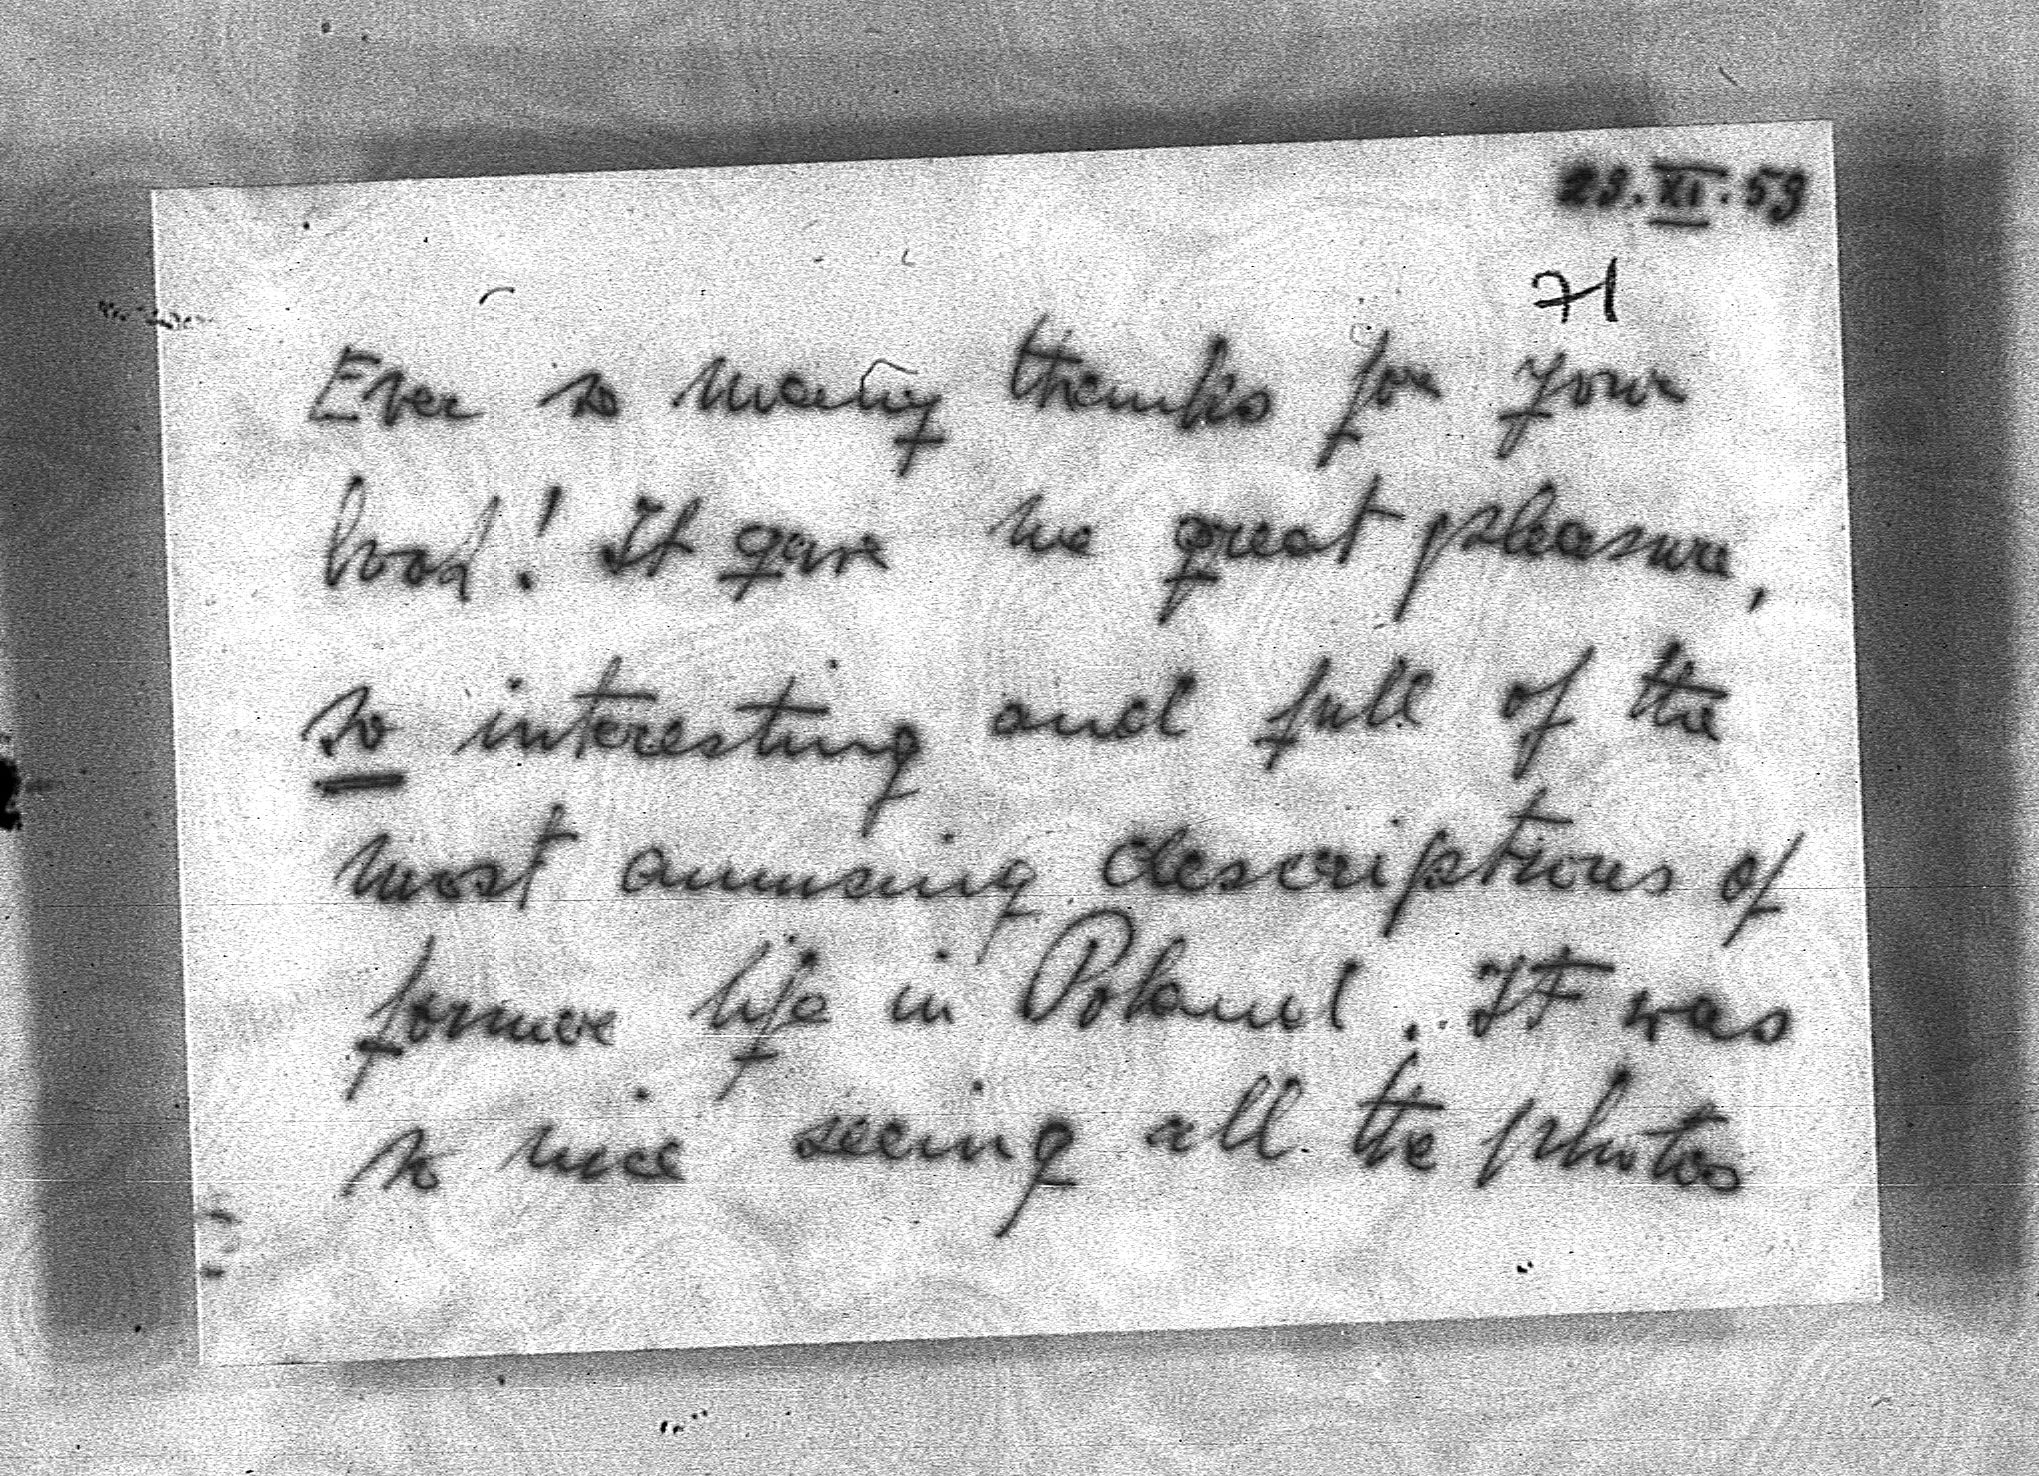 23.XI.59
71
Ever so many thanks for your
book! It gave me great pleasure,
so interesting and full of the
most amusing descriptions of
former life in Poland. It was
so nice seeing all the photos